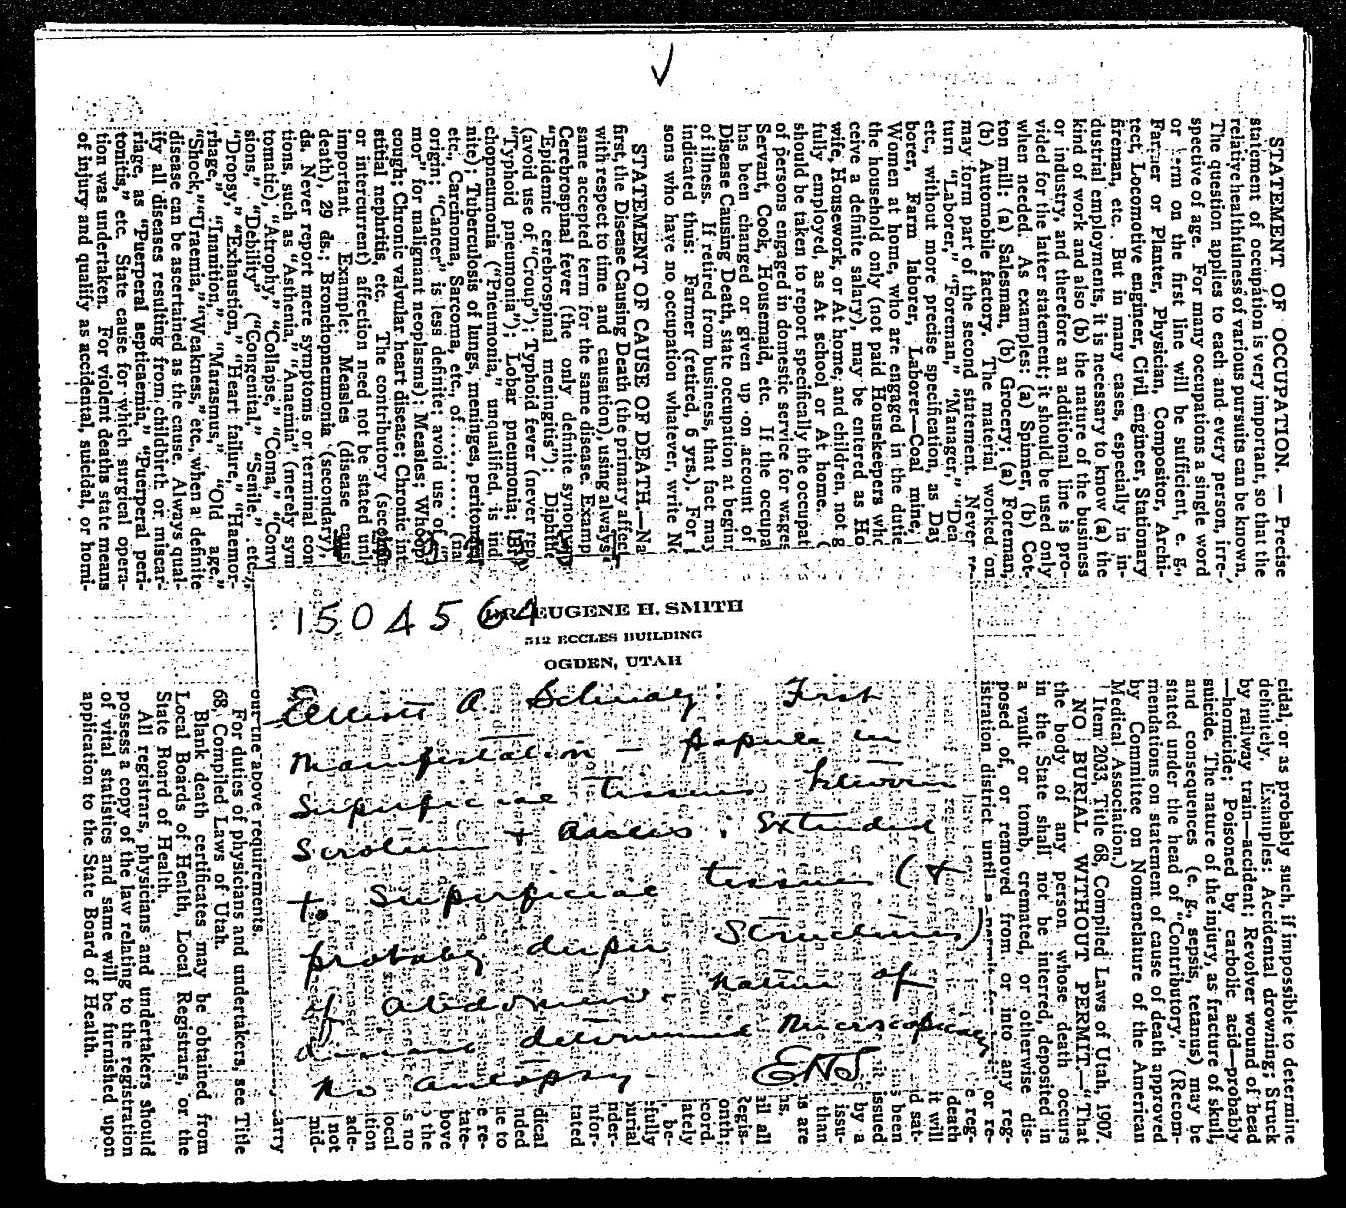 STATEMENT OF OCCUPATION. — Precise
statement of occupation is very important, so that the
relative healthfulness of various pursuits can be known.
The question applies to each and every person, irre-
spective of age. For many occupations a single word
or term on the first line will be sufficient, e. g.,
Farmer or Planter, Physician, Compositor, Archi-
tect, Locomotive engineer, Civil engineer, Stationary
fireman, etc. But in many cases, especially in in-
dustrial employments, it is necessary to know (a) the
kind of work and also (b) the nature of the business
or industry, and therefore an additional line is pro-
vided for the latter statement; it should be used only
when needed. As examples: (a) Spinner, (b) Cot-
ton mill: (a) Salesman, (b) Grocery; (a) Foreman,
(b) Automobile factory. The material worked on
may form part of the second statement. Never re-
turn "Laborer," "Foreman," "Manager," "Dea
etc., without more precise specification, as Day
borer, Farm laborer, Laborer—Coal mine,
Women at home, who are engaged in the dutie
the household only (not paid Housekeepers who
ceive a definite salary), may be entered as Ho
wife, Housework, or At home, and children, not g
fully employed, as At school or At home. (
should be taken to report specifically the occupat
of persons engaged in domestic service for wages
Servant, Cook, Housemaid, etc. If the occupa
has been changed or given up on account of
Disease Causing Death, state occupation at beginr
of illness. If retired from business, that fact may
indicated thus: Farmer (retired, 6 yrs.). For
sons who have no occupation whatever, write No
STATEMENT OF CAUSE OF DEATH.—Na
first, the Disease Causing Death (the primary affect
with respect to time and causation), using always
same accepted term for the same disease. Examp
Cerebrospinal fever (the only definite synonym
"Epidemic cerebrospinal meningitis"); Diphthe
(avoid use of "Croup"); Typhoid fever (never rep
"Typhoid pneumonia"); Lobar pneumonia;
chopneumonia ("Pneumonia," unqualified, is ind
nite); Tuberculosis of lungs, meninges, periton
etc., Carcinoma, Sarcoma, etc., of.......... (na
origin; "Cancer" is less definite; avoid use of "
mor" for malignant neoplasms); Measles; Whoop
cough; Chronic valvular heart disease; Chronic int
stitial nephritis, etc. The contributory (second
or intercurrent) affection need not be stated unl
important. Example: Measles (disease causi
death), 29 ds.; Bronchopneumonia (secondary),
ds. Never report mere symptoms or terminal con
tions, such as "Asthenia," "Anaemia" (merely sym
tomatic), "Atrophy," "Collapse," "Coma," "Conv
sions," "Debility" ("Congenital," "Senile," etc.,
"Dropsy," "Exhaustion," "Heart failure," "Haemor-
rhage," "Inanition," "Marasmus," "Old age,"
"Shock," "Uraemia," "Weakness," etc., when a definite
disease can be ascertained as the cause. Always qual-
ify all diseases resulting from childbirth or miscar-
riage, as "Puerperal septicaemia," "Puerperal peri-
tonitis," etc. State cause for which surgical opera-
tion was undertaken. For violent deaths state means
of injury and qualify as accidental, suicidal, or homi-
cidal, or as probably such, if impossible to determine
definitely. Examples: Accidental drowning; Struck
by railway train—accident; Revolver wound of head
—homicide; Poisoned by carbolic acid—probably
suicide. The nature of the injury, as fracture of skull,
and consequences (e. g., sepsis, tetanus) may be
stated under the head of "Contributory." (Recom-
mendations on statement of cause of death approved
by Committee on Nomenclature of the American
Medical Association.)
Item 2033, Title 68, Compiled Laws of Utah, 1907.
NO BURIAL WITHOUT PERMIT.—"That
the body of any person whose death occurs
in the State shall not be interred, deposited in
a vault or tomb, cremated, or otherwise dis-
posed of, or removed from or into any reg-
istration district until a permit for or re-
our the above requirements.
For duties of physicians and undertakers, see Title
68, Compiled Laws of Utah.
Blank death certificates may be obtained from
Local Boards of Health, Local Registrars, or the
State Board of Health.
All registrars, physicians and undertakers should
possess a copy of the law relating to the registration
of vital statistics and same will be furnished upon
application to the State Board of Health.
1504564
DR. EUGENE H. SMITH
512 ECCLES BUILDING
OGDEN, UTAH
A. First
Manifestation — papule in
Superficial tissues between
Scrotum + : Extended
to Superficial tissues (+
probably deeper Structures)
of abdomen. Nature of
disease determined Microscopically
No autopsy. EHS.